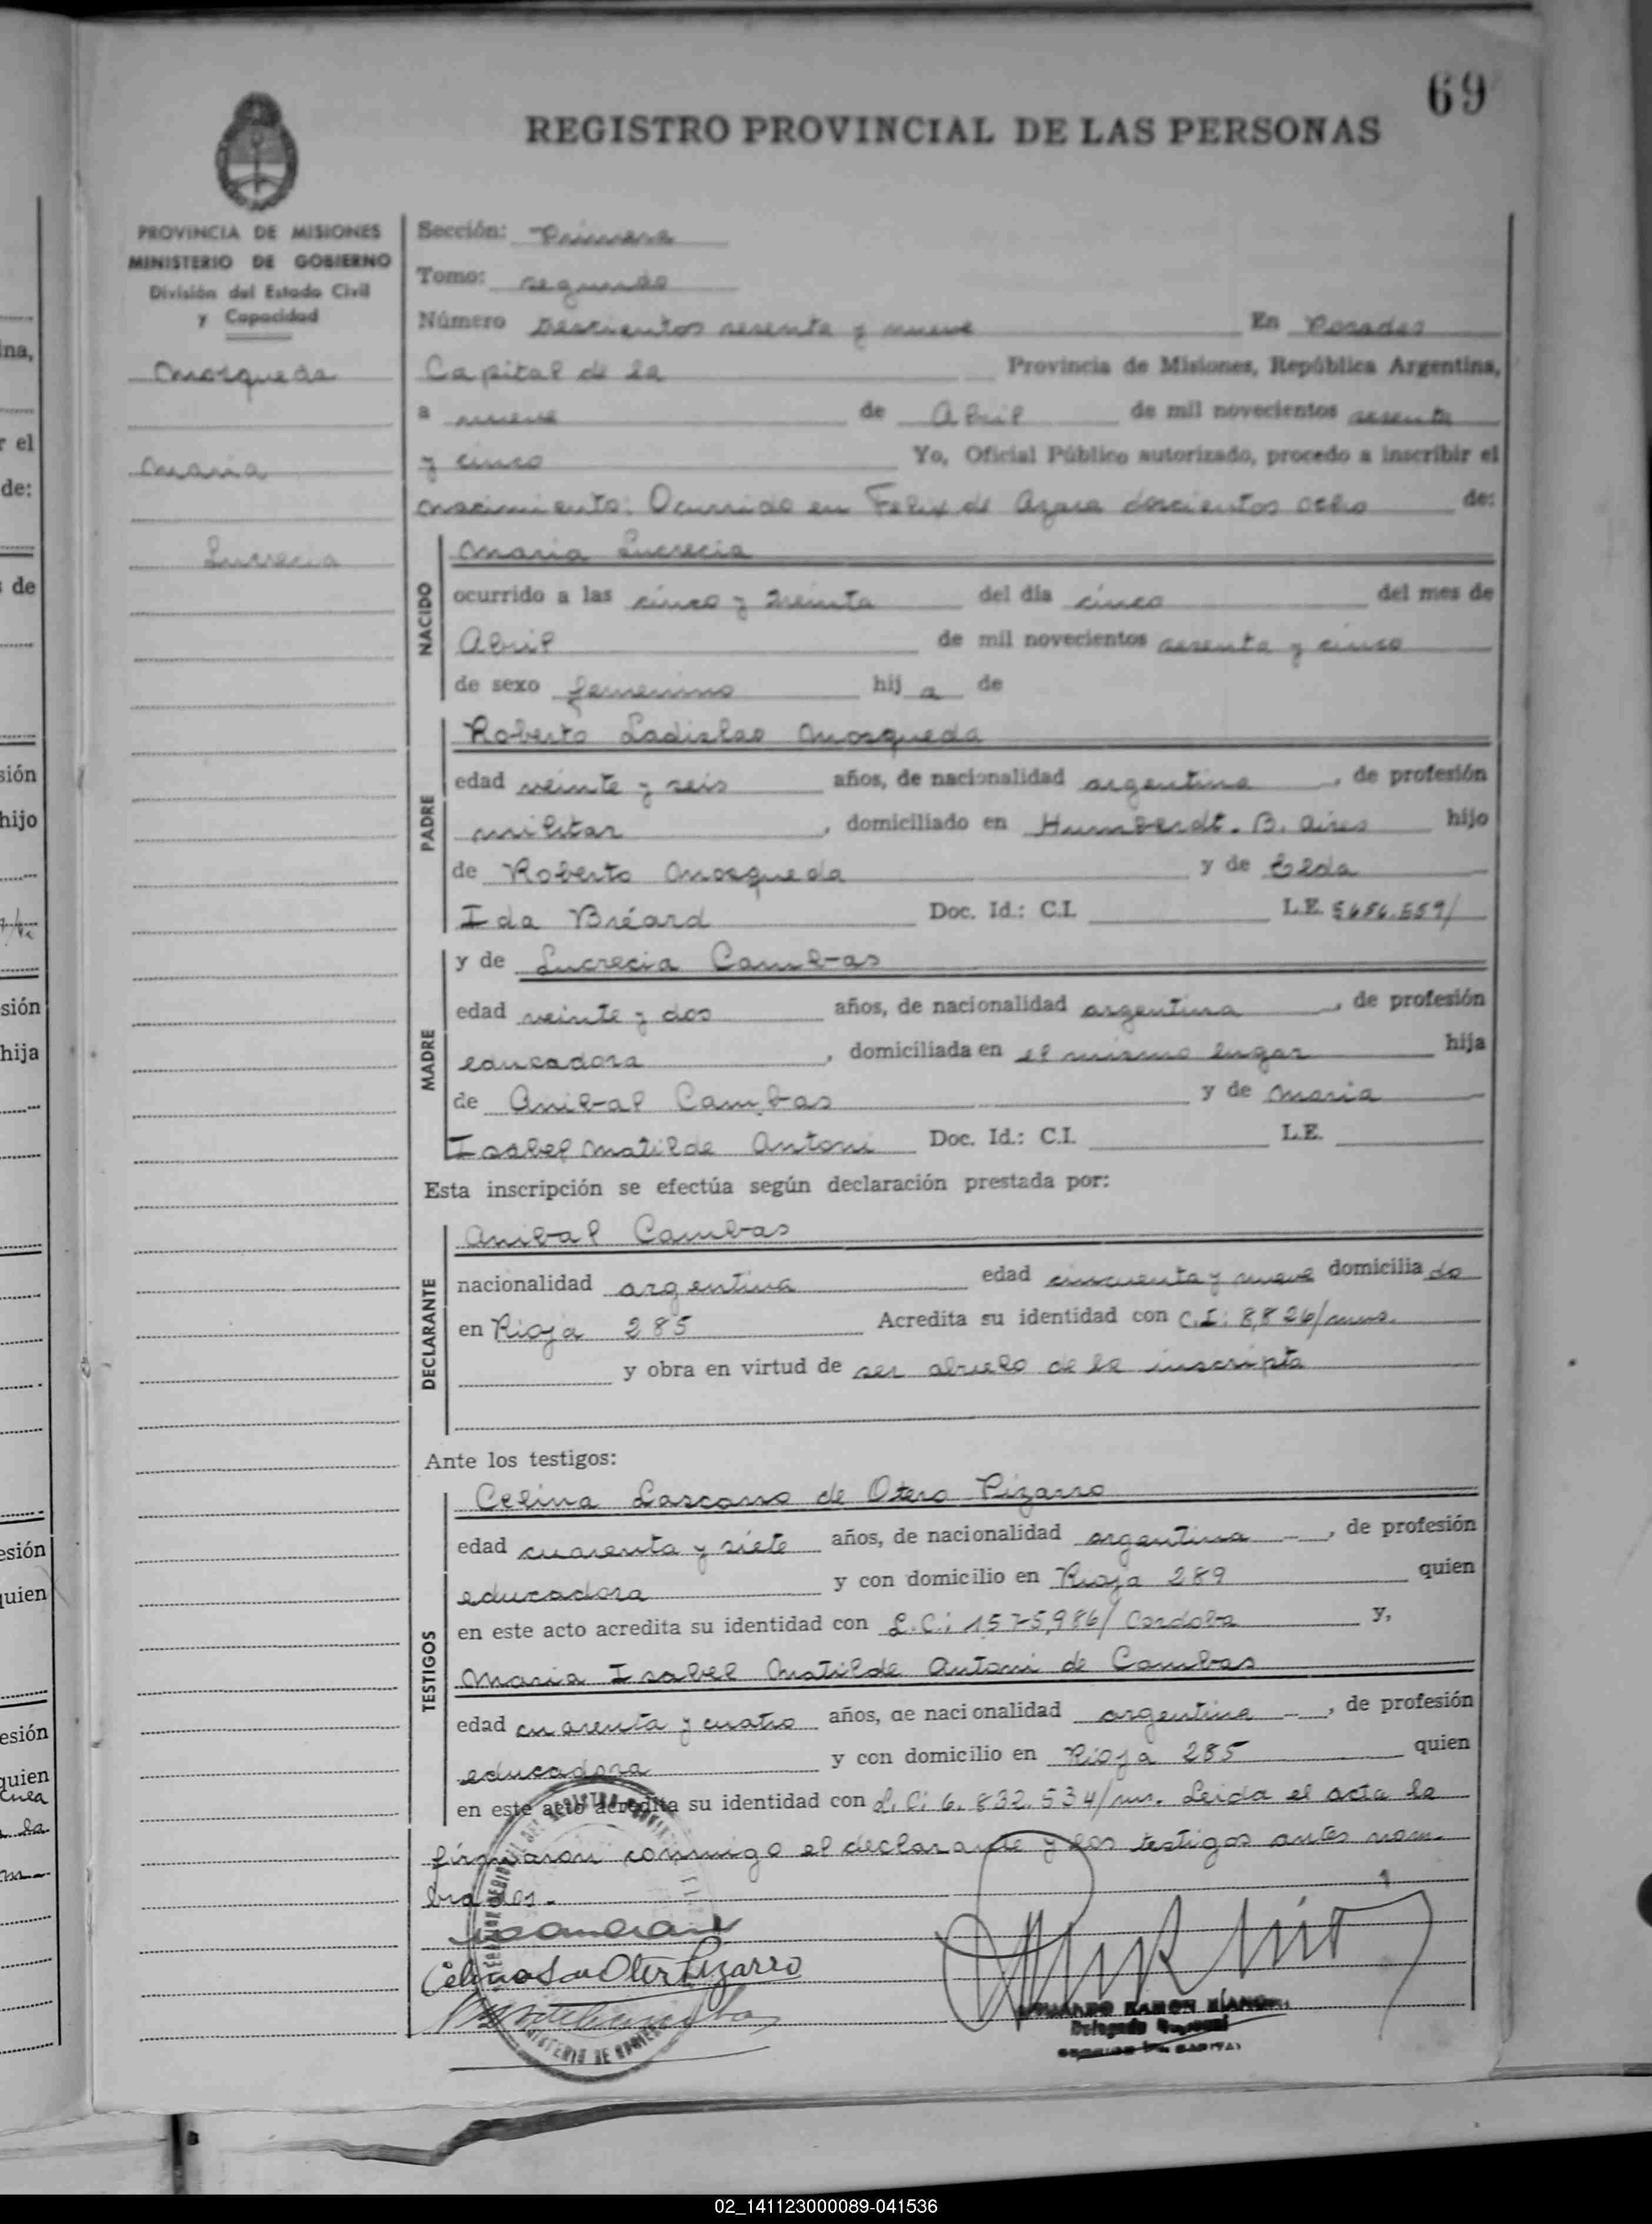 69
REGISTRO PROVINCIAL DE LAS PERSONAS
PROVINCIA DE MISIONES
MINISTERIO DE GOBIERNO
División del Estado Civil
y Capacidad
Mosqueda
Maria
Lucrecia
Sección: Primera
Tomo: segundo
Número Doscientos sesenta y nueve En Posadas
Capital de la Provincia de Misiones, República Argentina,
a nueve de Abril de mil novecientos sesenta
y cinco Yo, Oficial Público autorizado, procedo a inscribir el
nacimiento: Ocurrido en Felix de Azara doscientos ocho de:
NACIDO
Maria Lucrecia
ocurrido a las cinco y treinta del día cinco del mes de
Abril de mil novecientos sesenta y cinco
de sexo femenino hij a de
PADRE
Roberto Ladislao Mosqueda
edad veinte y seis años, de nacionalidad argentina, de profesión
militar, domiciliado en Humberdt. B. Aires hijo
de Roberto Mosqueda y de Elda
Ida Bréard Doc. Id.: C.I. L.E. 5656.559/
MADRE
y de Lucrecia Cambas
edad veinte y dos años, de nacionalidad argentina, de profesión
educadora, domiciliada en el mismo lugar hija
de Anibal Cambas y de Maria
Isabel Matilde Antoni Doc. Id.: C.I. L.E.
Esta inscripción se efectúa según declaración prestada por:
DECLARANTE
Anibal Cambas
nacionalidad argentina edad cincuenta y nueve domicilia do
en Rioja 285 Acredita su identidad con C.I: 8,826/mnes.
y obra en virtud de ser abuelo de la inscripta
Ante los testigos:
TESTIGOS
Celina Lascano de Otero Pizarro
edad cuarenta y siete años, de nacionalidad argentina, de profesión
educadora y con domicilio en Rioja 289 quien
en este acto acredita su identidad con L.C: 1575,986/ Cordoba y,
Maria Isabel Matilde Antoni de Cambas
edad cuarenta y cuatro años, de nacionalidad argentina, de profesión
educadora y con domicilio en Rioja 285 quien
en este acto acredita su identidad con L.C: 6.832.534/ms. Leida el acta la
firmaron conmigo el declarante y los testigos antes nom-
brados.-
Celina L de Otero Pizarro
RAMON
Delegado
02_141123000089-041536